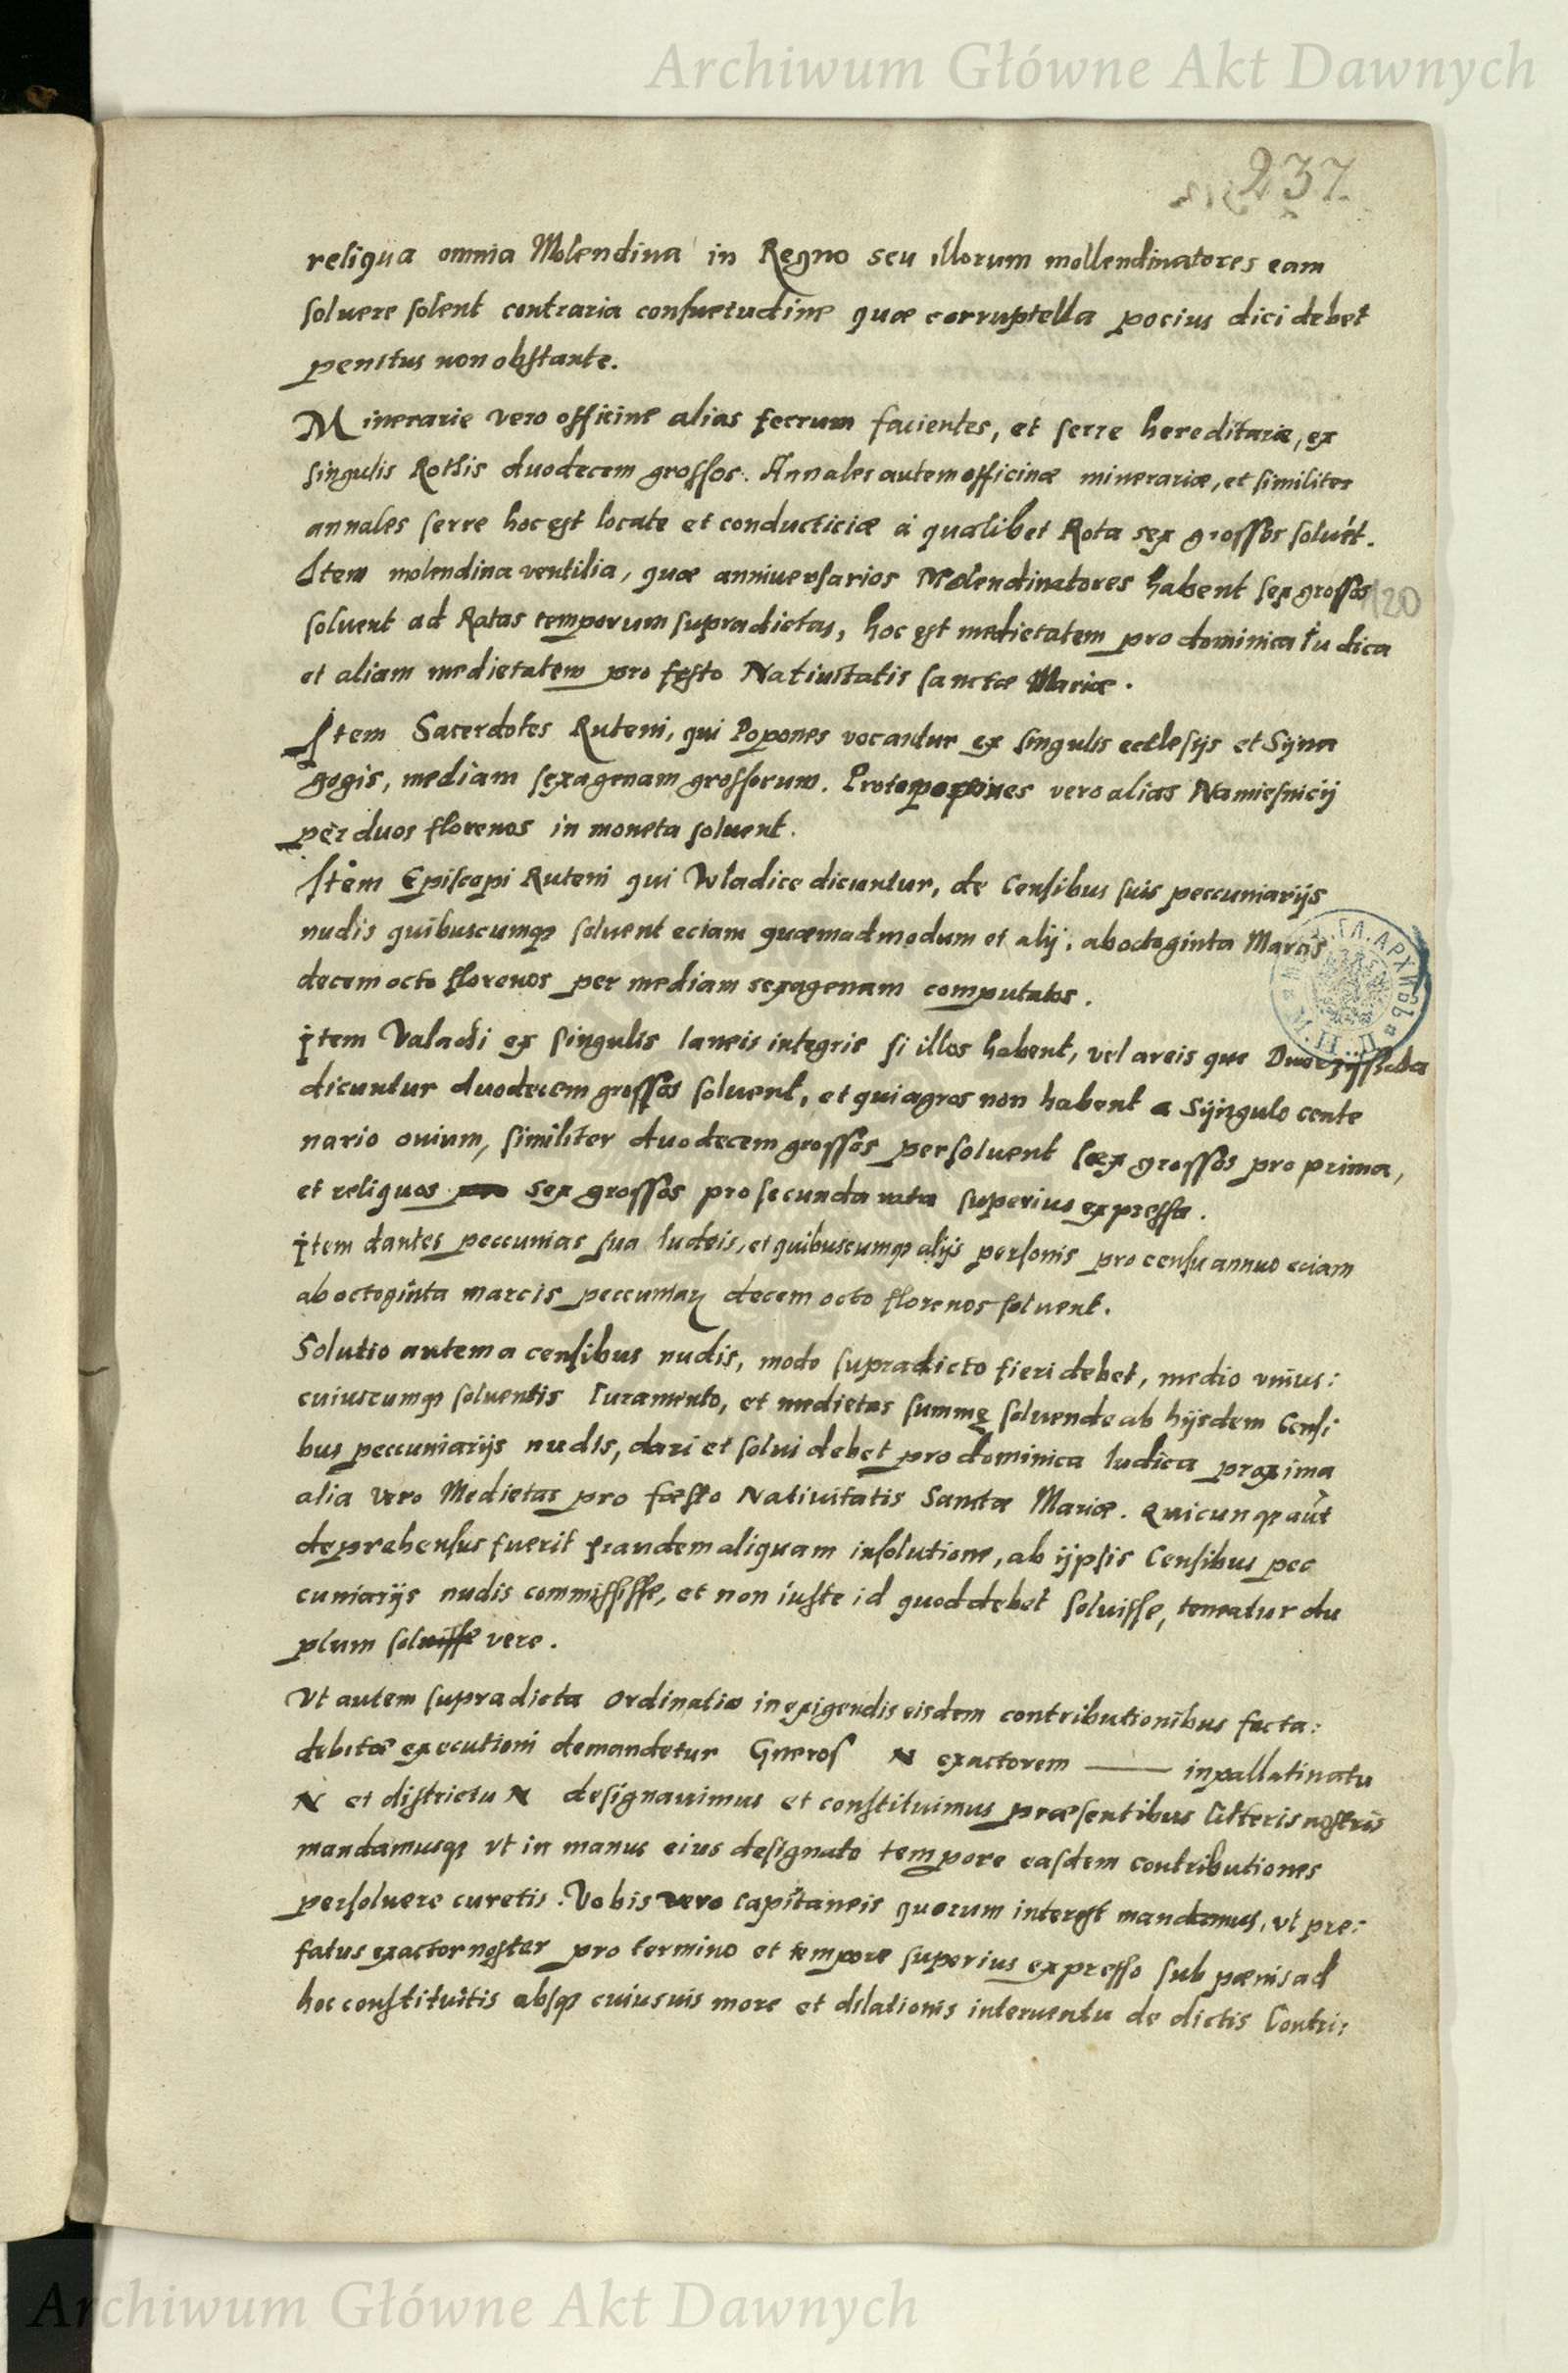 Archiwum Główne Akt Dawnych
237.
reliqua omnia Molendina in Regno seu illorum mollendinatores eam
soluere solent contraria consuetudine quæ corruptella pocius dici debet
penitus non obstante.
Minerarie vero officine alias ferrum facientes, et serre hereditariæ, ex
singulis Rothis duodecem grossos. Annales autem officinæ minerariæ, et similiter
annales serre hoc est locate et conducticiæ a qualibet Rota sex grossos soluēt.
Item molendina ventilia, quæ anniversarios Molendinatores habent sex grossos
120
soluent ad Ratas temporum supradictas, hoc est medietatem pro dominica Iudica
et aliam medietatem pro festo Natiuitatis sanctæ Mariæ.
Item Sacerdotes Ruteni, qui Popones vocantur ex singulis ecclesijs et Syna
gogis, mediam sexagenam grossorum. Protopopones vero alias Namiesnicij
per duos florenos in moneta soluent.
Item Episcopi Ruteni qui Wladice dicuntur, de Censibus suis peccuniarijs
nudis quibuscumqȝ soluent eciam quæmadmodum et alij: ab octoginta Marcis
decem octo florenos per mediam sexagenam computatos.
Item Valachi ex singulis laneis integris si illos habent, vel areis que
dicuntur duodecem grossos soluent, et qui agros non habent a Syngulo cente
nario ovium, similiter duodecem grossos persoluent sæx grossos pro prima,
et reliquos sex grossos pro secunda rata superius expressa.
Item dantes peccunias sua Iudeis, et quibuscumqȝ alijs personis pro censu annuo eciam
ab octoginta marcis peccuniaꝝ decem octo florenos soluent.
Solutio autem a censibus nudis, modo supradicto fieri debet, medio vnius:
cuiuscumqȝ soluentis Iuramento, et medietas summę soluende ab hijsdem Censi:
bus peccuniarijs nudis, dari et solui debet pro dominica Iudica proxima
alia vero Medietas pro fæsto Nativitatis Sanctæ Mariæ. Quicunqȝ aūt
deprehensus fuerit fraudem aliquam in solutione, ab ijpsis Censibus pec
cuniarijs nudis commisisse, et non iuste id quod debet soluisse, teneatur du
plum soluisse vere.
Vt autem supradicta Ordinatio in exigendis eisdem contributionibus facta:
debitæ executioni demandetur Gneros N exactorem —— in pallatinatu
N et districtu N designauimus et constituimus præsentibus litteris nostris
mandamusqȝ vt in manus eius designato tempore easdem contributiones
persoluere curetis. Vobis vero Capitaneis quorum interest mandamus, vt pre:
fatus exactor noster pro termino et tempore superius expresso sub pænis ad
hoc constitutis absqȝ cuiusuis more et dilationis interuentu de dictis Contri:
Archiwum Główne Akt Dawnych